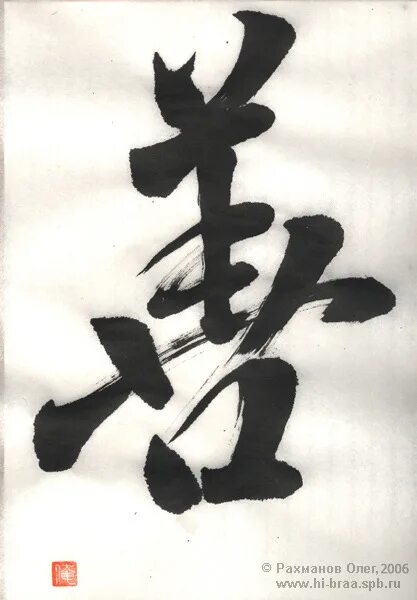 善
© Рахманов Олег, 2006
www.hi-braa.spb.ru